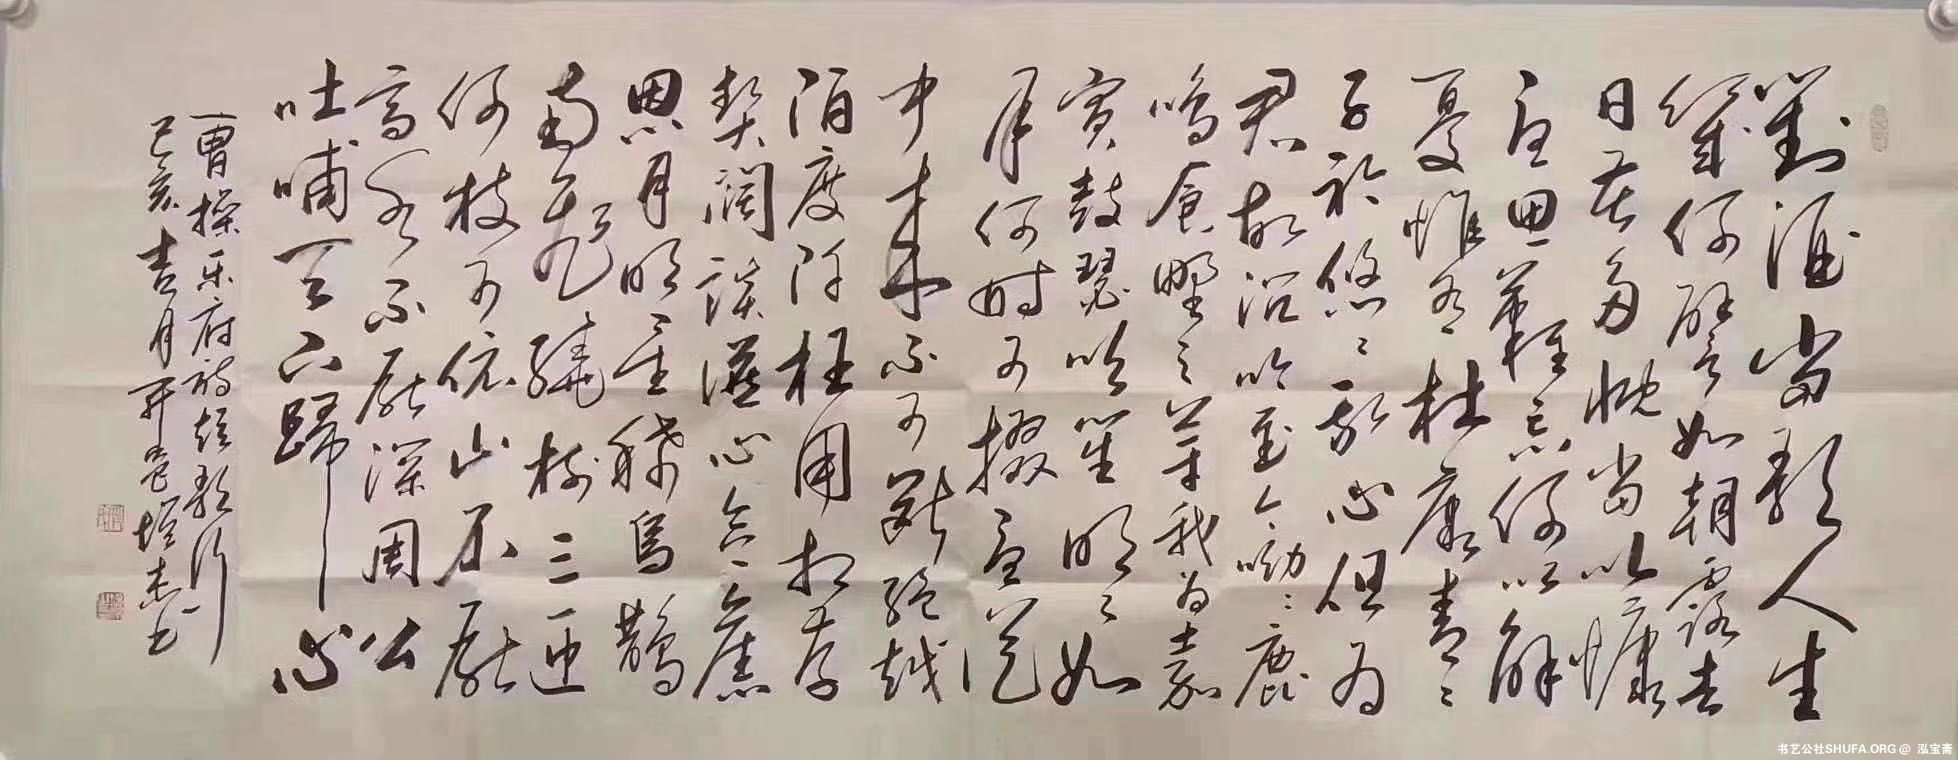 對酒當歌人生
幾何譬如朝露去
日苦多慨當以慷
憂思難忘何以解
憂惟有杜康青々
子衿悠々我心但為
君故沉吟至今呦々鹿
鳴食野之苹我有嘉
賓鼓瑟吹笙明々如
月何時可掇憂從
中來不可斷絕越
陌度阡枉用相存
契闊談讌心念舊
恩月明星稀烏鵲
南飛繞樹三匝
何枝可依山不厭
高水不厭深周公
吐哺天下歸心
曹操乐府詩短歌行
己亥吉月
书艺公社SHUFA.ORG @ 泓宝斋